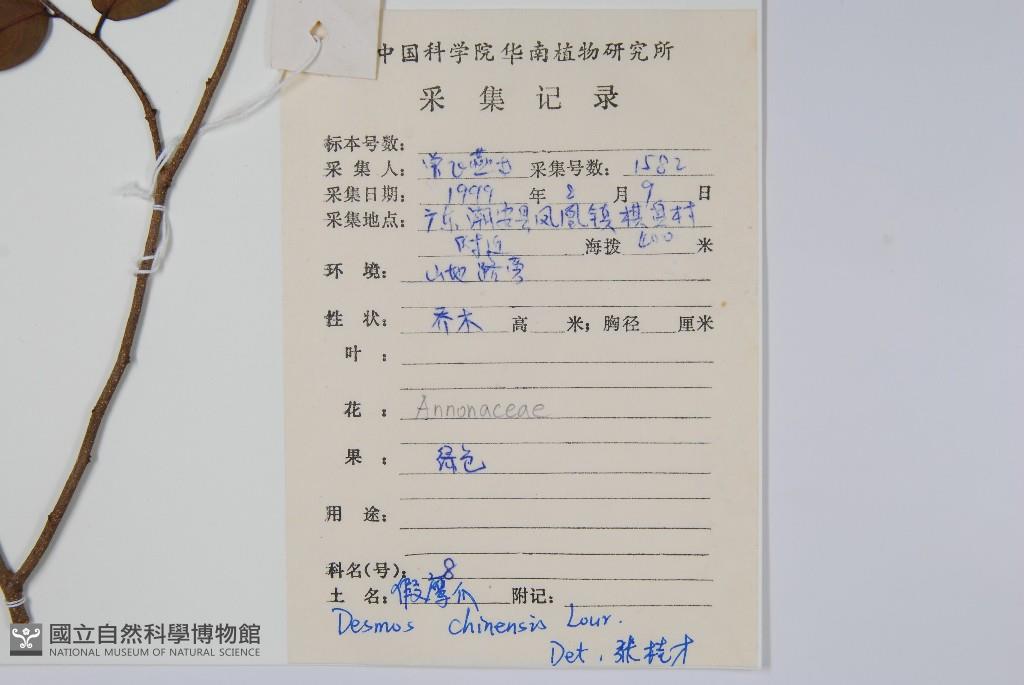 中国科学院华南植物研究所
采 集 记 录
标本号数：
采 集 人：曾飞燕 采集号数：1582
采集日期：1999 年 8 月 9 日
采集地点：广东潮安县凤凰镇棋盘村
附近 海拨 400 米
环 境：山地路旁
性 状：乔木 高 米；胸径 厘米
叶：
花：Annonaceae
果：绿色
用 途：
科名(号)：8
土 名：假摩爪 附记：
Desmos chinensis Lour.
Det. 张桂才
國立自然科學博物館
NATIONAL MUSEUM OF NATURAL SCIENCE